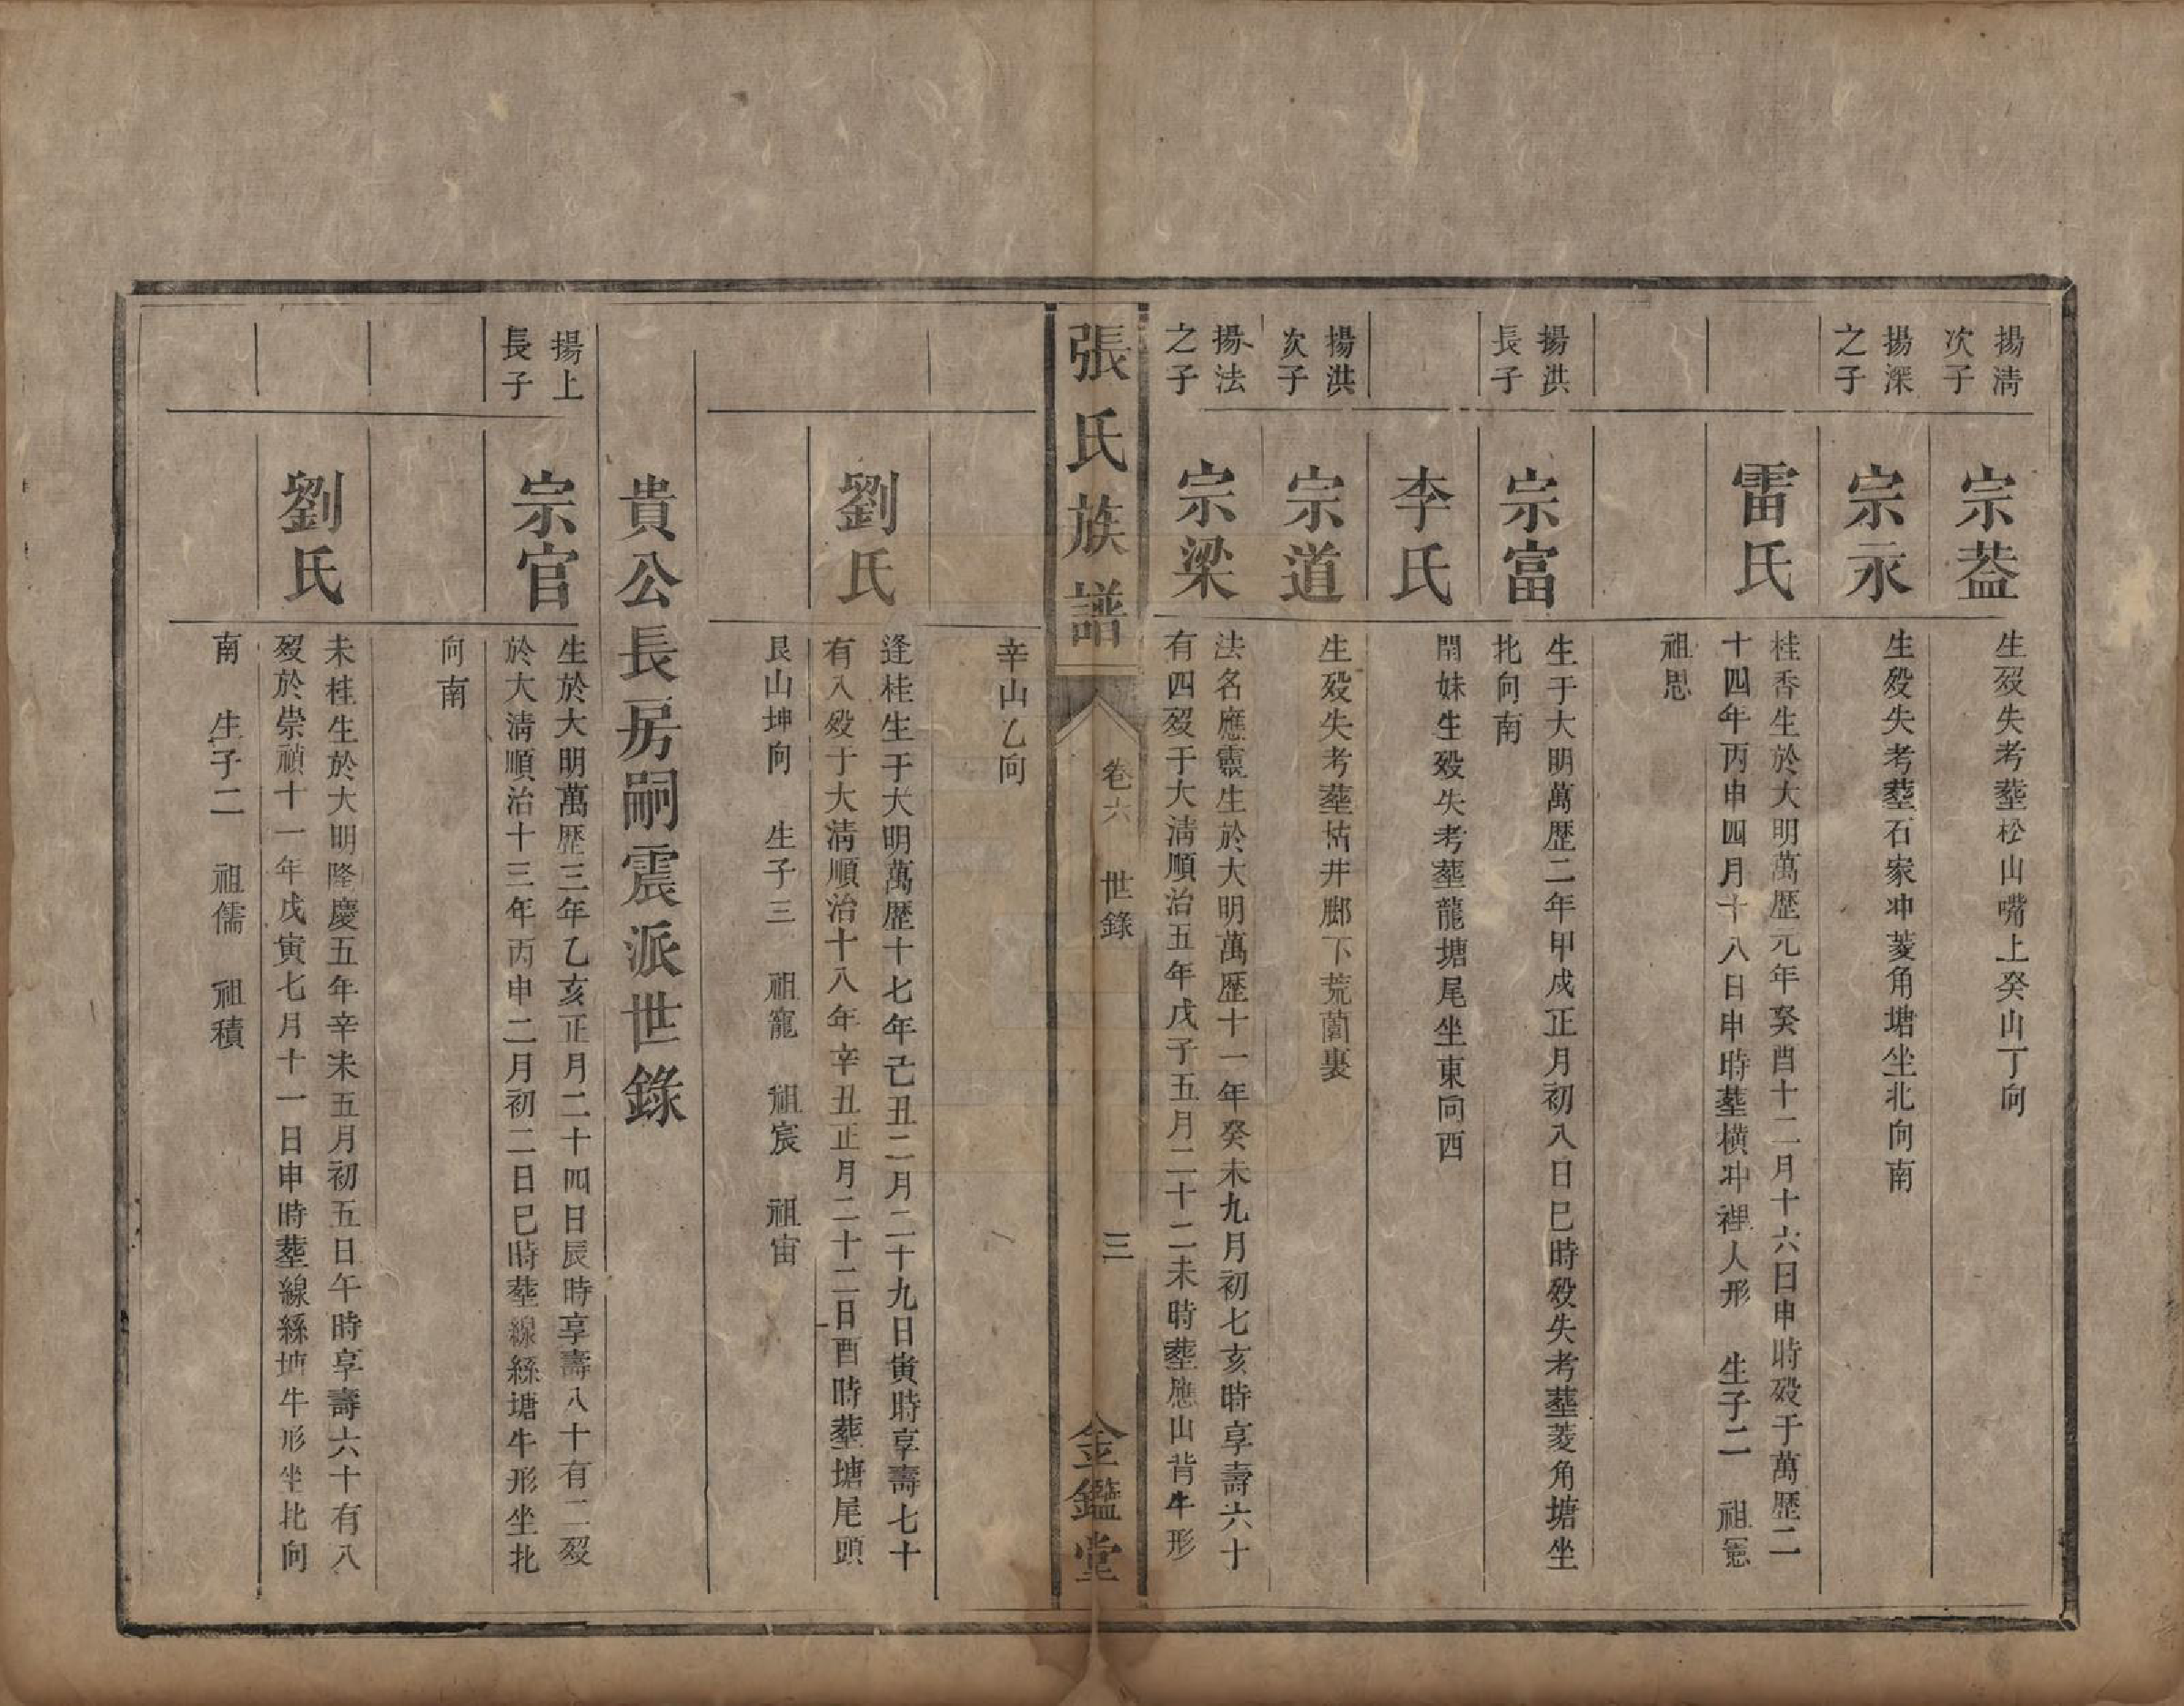 揚清
次子
宗葢
生殁失考塟松山嘴上癸山丁向
揚深
之子
宗永
生殁失考塟石家冲菱角塘坐北向南
雷氏
桂香生於大明萬歴元年癸酉十二月十六日申時殁于萬歴二
十四年丙申四月十八日申時塟橫冲裡人形　生子二　祖寵
祖思
揚洪
長子
宗富
生于大明萬歴二年甲戌正月初八日巳時殁失考塟菱角塘坐
北向南
李氏
閏妹生殁失考塟龍塘尾坐東向西
揚洪
次子
宗道
生殁失考塟枯井脚下荒園裏
揚法
之子
宗梁
法名應震生於大明萬歴十一年癸未九月初七亥時享壽六十
有四殁于大清順治五年戊子五月二十二未時塟應山背牛形
辛山乙向
劉氏
逢桂生于大明萬歴十七年己丑二月二十九日寅時享壽七十
有八殁于大清順治十八年辛丑正月二十二日酉時塟塘尾頭
艮山坤向　生子三　祖寵　祖宸　祖宙
張氏族譜
卷六　世錄
三
金鑑堂
貴公長房嗣震派世錄
揚上
長子
宗官
生於大明萬歴三年乙亥正月二十四日辰時享壽八十有二殁
於大清順治十三年丙申二月初二日巳時塟線絲塘牛形坐北
向南
劉氏
未桂生於大明隆慶五年辛未五月初五日午時享壽六十有八
殁於崇禎十一年戊寅七月十一日申時塟線絲塘牛形坐北向
南　生子二　祖儒　祖積